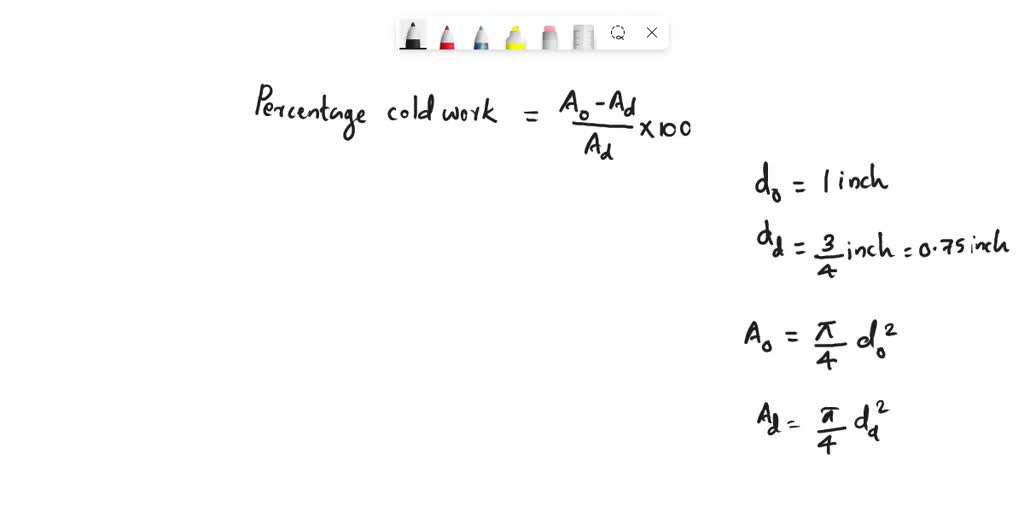 Percentage cold work = A₀ - A_d / A_d × 100
d₀ = 1 inch
d_d = 3/4 inch = 0.75 inch
A₀ = π/4 d₀²
A_d = π/4 d_d²